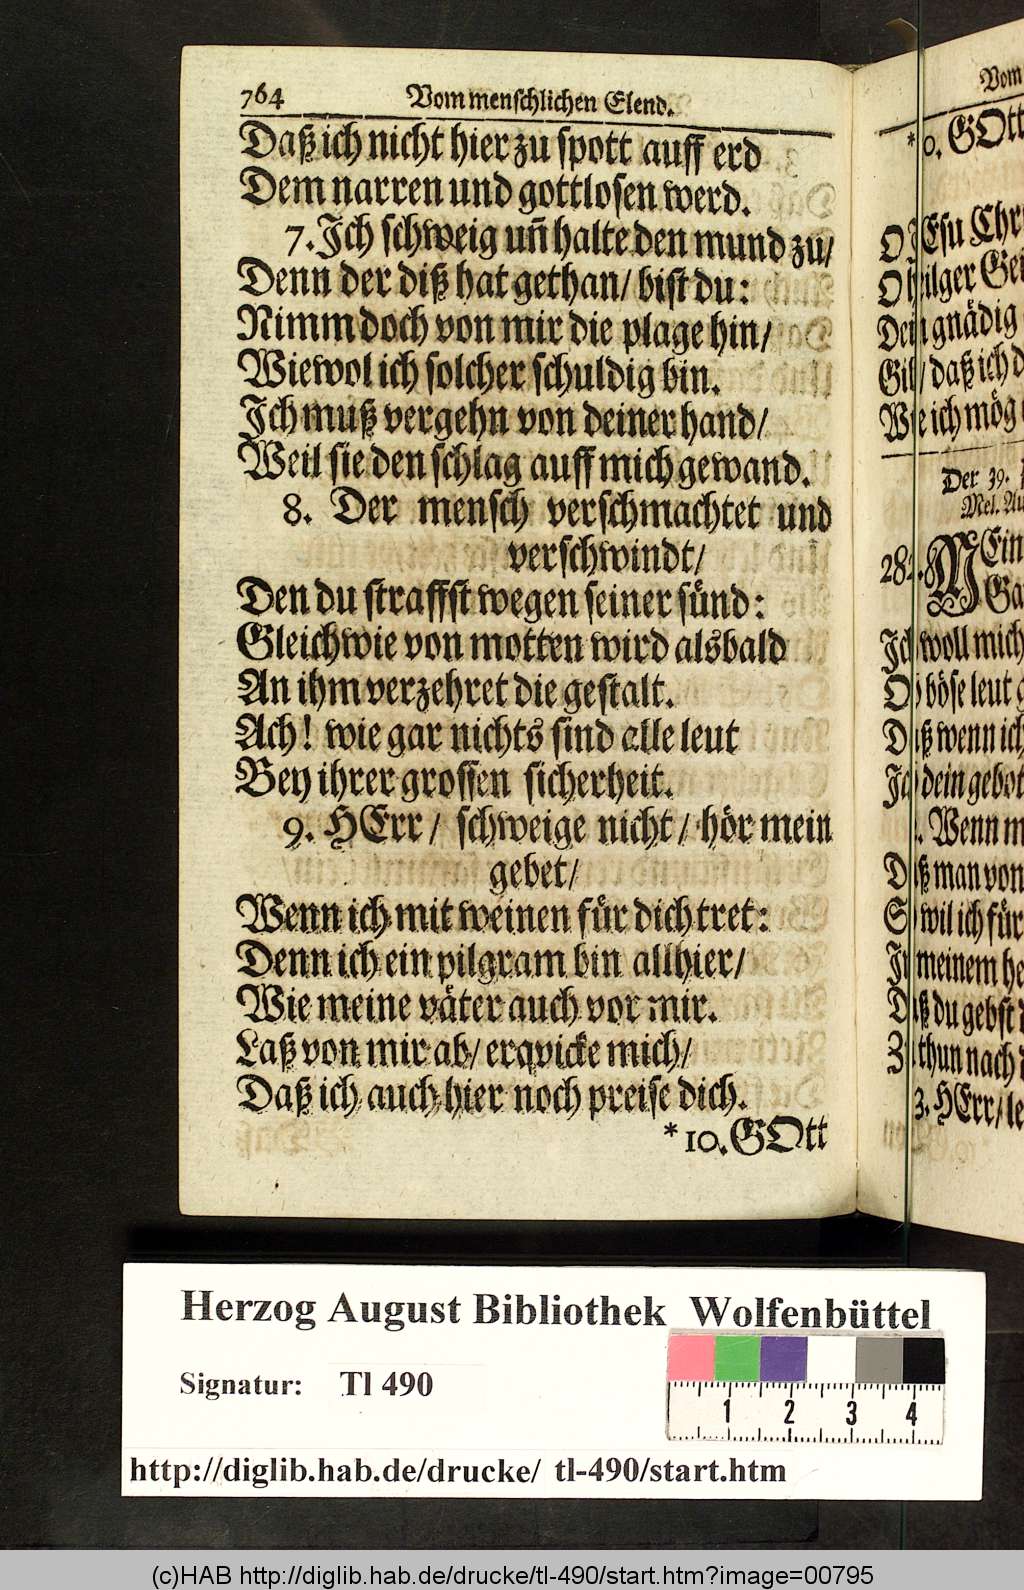 764 Vom menschlichen Elend.
Daß ich nicht hier zu spott auff erd
Dem narren und gottlosen werd.
7. Ich schweig un̄ halte den mund zu/
Denn der diß hat gethan/ bist du:
Nimm doch von mir die plage hin/
Wiewol ich solcher schuldig bin.
Ich muß vergehn von deiner hand/
Weil sie den schlag auff mich gewand.
8. Der mensch verschmachtet und
verschwindt/
Den du straffst wegen seiner sünd:
Gleichwie von motten wird alsbald
An ihm verzehret die gestalt.
Ach! wie gar nichts sind alle leut
Bey ihrer grossen sicherheit.
9. HErr/ schweige nicht/ hör mein
gebet/
Wenn ich mit weinen für dich tret:
Denn ich ein pilgram bin allhier/
Wie meine väter auch vor mir.
Laß von mir ab/ erqvicke mich/
Daß ich auch hier noch preise dich.
*10. GOtt
Vom
*10. GOtt
O JEsu Chr
O heilger Gei
Dein gnädig
Gib/ daß ich d
Wie ich mög
Der 39.
Mel. Au
MEin
Ga
Ich woll mich
Ob böse leut
Daß wenn ich
Ich dein gebot
Wenn m
Daß man von
So wil ich für
In meinem he
Daß du gebst
Zu thun nach
3. HErr/ le
Herzog August Bibliothek Wolfenbüttel
Signatur: Tl 490
1 2 3 4
http://diglib.hab.de/drucke/ tl-490/start.htm
(c)HAB http://diglib.hab.de/drucke/tl-490/start.htm?image=00795